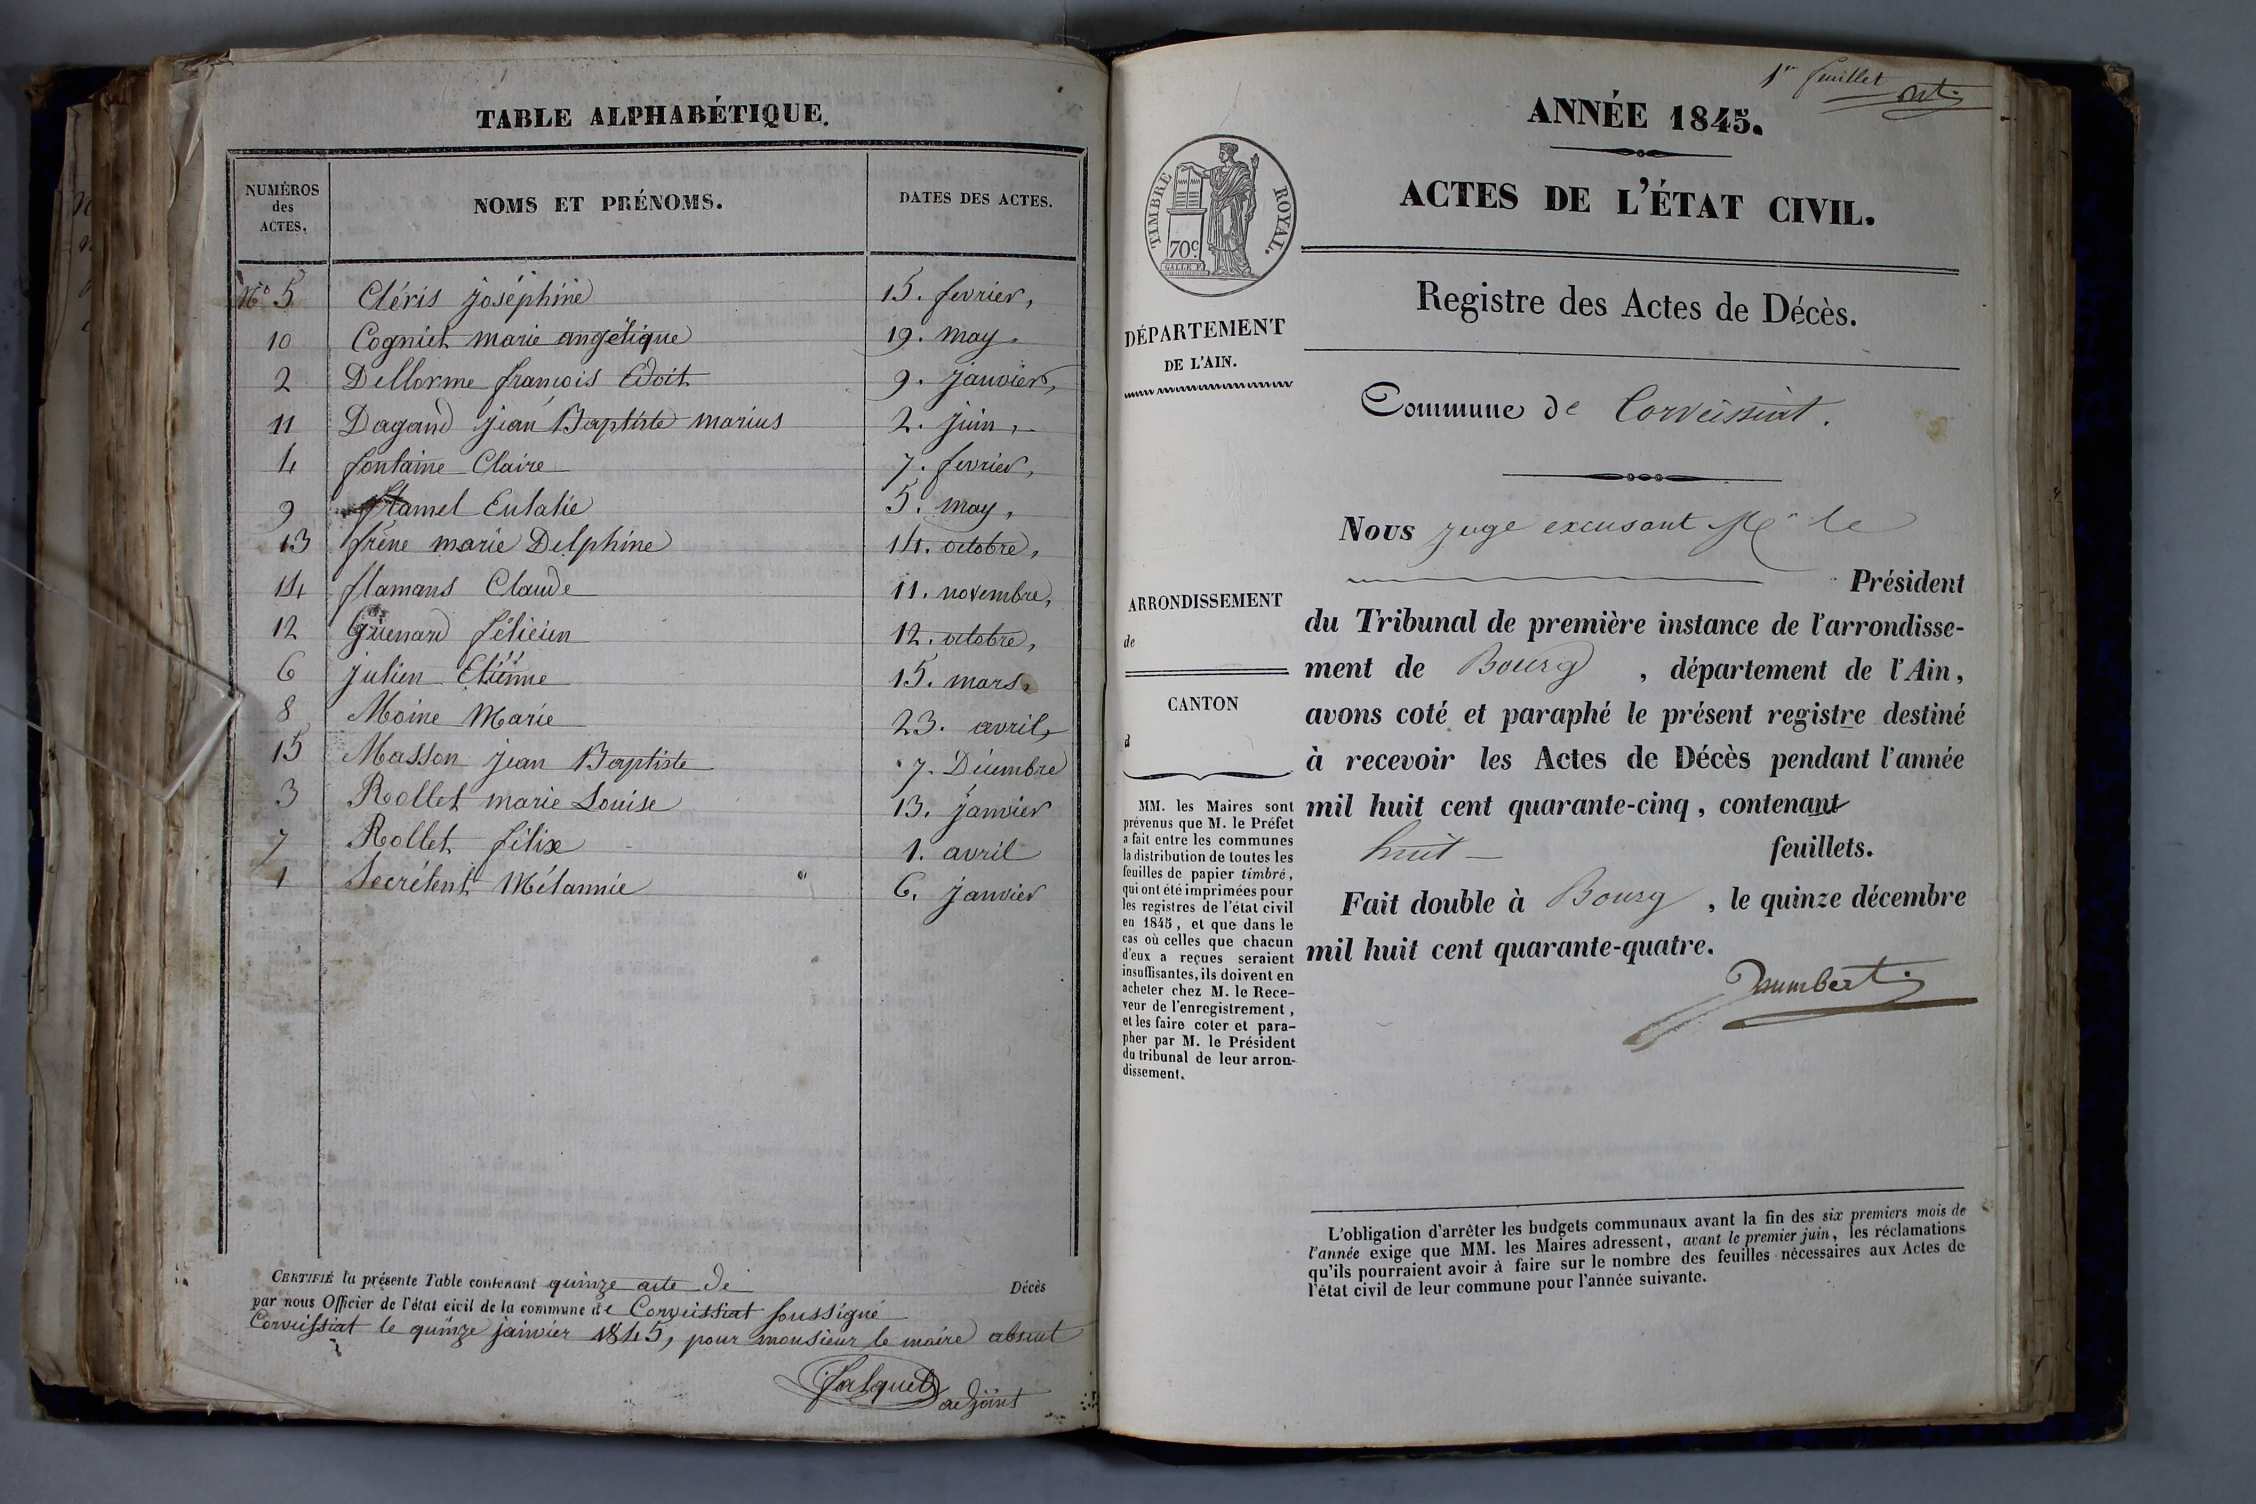 TABLE ALPHABÉTIQUE.
NUMÉROS des ACTES. NOMS ET PRÉNOMS. DATES DES ACTES.
N° 5 Cléris joséphine 15. fevrier,
10 Cogniet marie angélique 19. may.
2 Dellorme françois Edoit 9. janvier,
11 Dagand jean Baptiste marius 2. juin,
4 fontaine Claire 7. fevrier,
9 flamel Eulalie 5. may,
13 frêne marie Delphine 14. octobre,
14 flamans Claude 11. novembre,
12 Guenard félicien 12. octobre,
6 julien Etienne 15. mars,
8 Moine Marie 23. avril,
15 Masson jean Baptiste 7. Décembre
3 Rollet marie Louise 13. janvier
7 Rollet félix 1. avril
1 Secrétent Mélannie 6. janvier
CERTIFIÉ la présente Table contenant quinze acte de Décès
par nous Officier de l'état civil de la commune de Corveissiat soussigné
Corveissiat le quinze janvier 1845, pour monsieur le maire absent
falquet adjoint
1er feuillet
ANNÉE 1845.
ACTES DE L'ÉTAT CIVIL.
TIMBRE ROYAL.
70c
Registre des Actes de Décès.
DÉPARTEMENT
DE L'AIN.
Commune de Corveissiat.
Nous juge excusant Mr le
Président
ARRONDISSEMENT
de
CANTON
d
du Tribunal de première instance de l'arrondisse-
ment de Bourg, département de l'Ain,
avons coté et paraphé le présent registre destiné
à recevoir les Actes de Décès pendant l'année
mil huit cent quarante-cinq, contenant
huit feuillets.
Fait double à Bourg, le quinze décembre
mil huit cent quarante-quatre.
MM. les Maires sont
prévenus que M. le Préfet
a fait entre les communes
la distribution de toutes les
feuilles de papier timbré,
qui ont été imprimées pour
les registres de l'état civil
en 1845, et que dans le
cas où celles que chacun
d'eux a reçues seraient
insuffisantes, ils doivent en
acheter chez M. le Rece-
veur de l'enregistrement,
et les faire coter et para-
pher par M. le Président
du tribunal de leur arron-
dissement.
L'obligation d'arrêter les budgets communaux avant la fin des six premiers mois de
l'année exige que MM. les Maires adressent, avant le premier juin, les réclamations
qu'ils pourraient avoir à faire sur le nombre des feuilles nécessaires aux Actes de
l'état civil de leur commune pour l'année suivante.